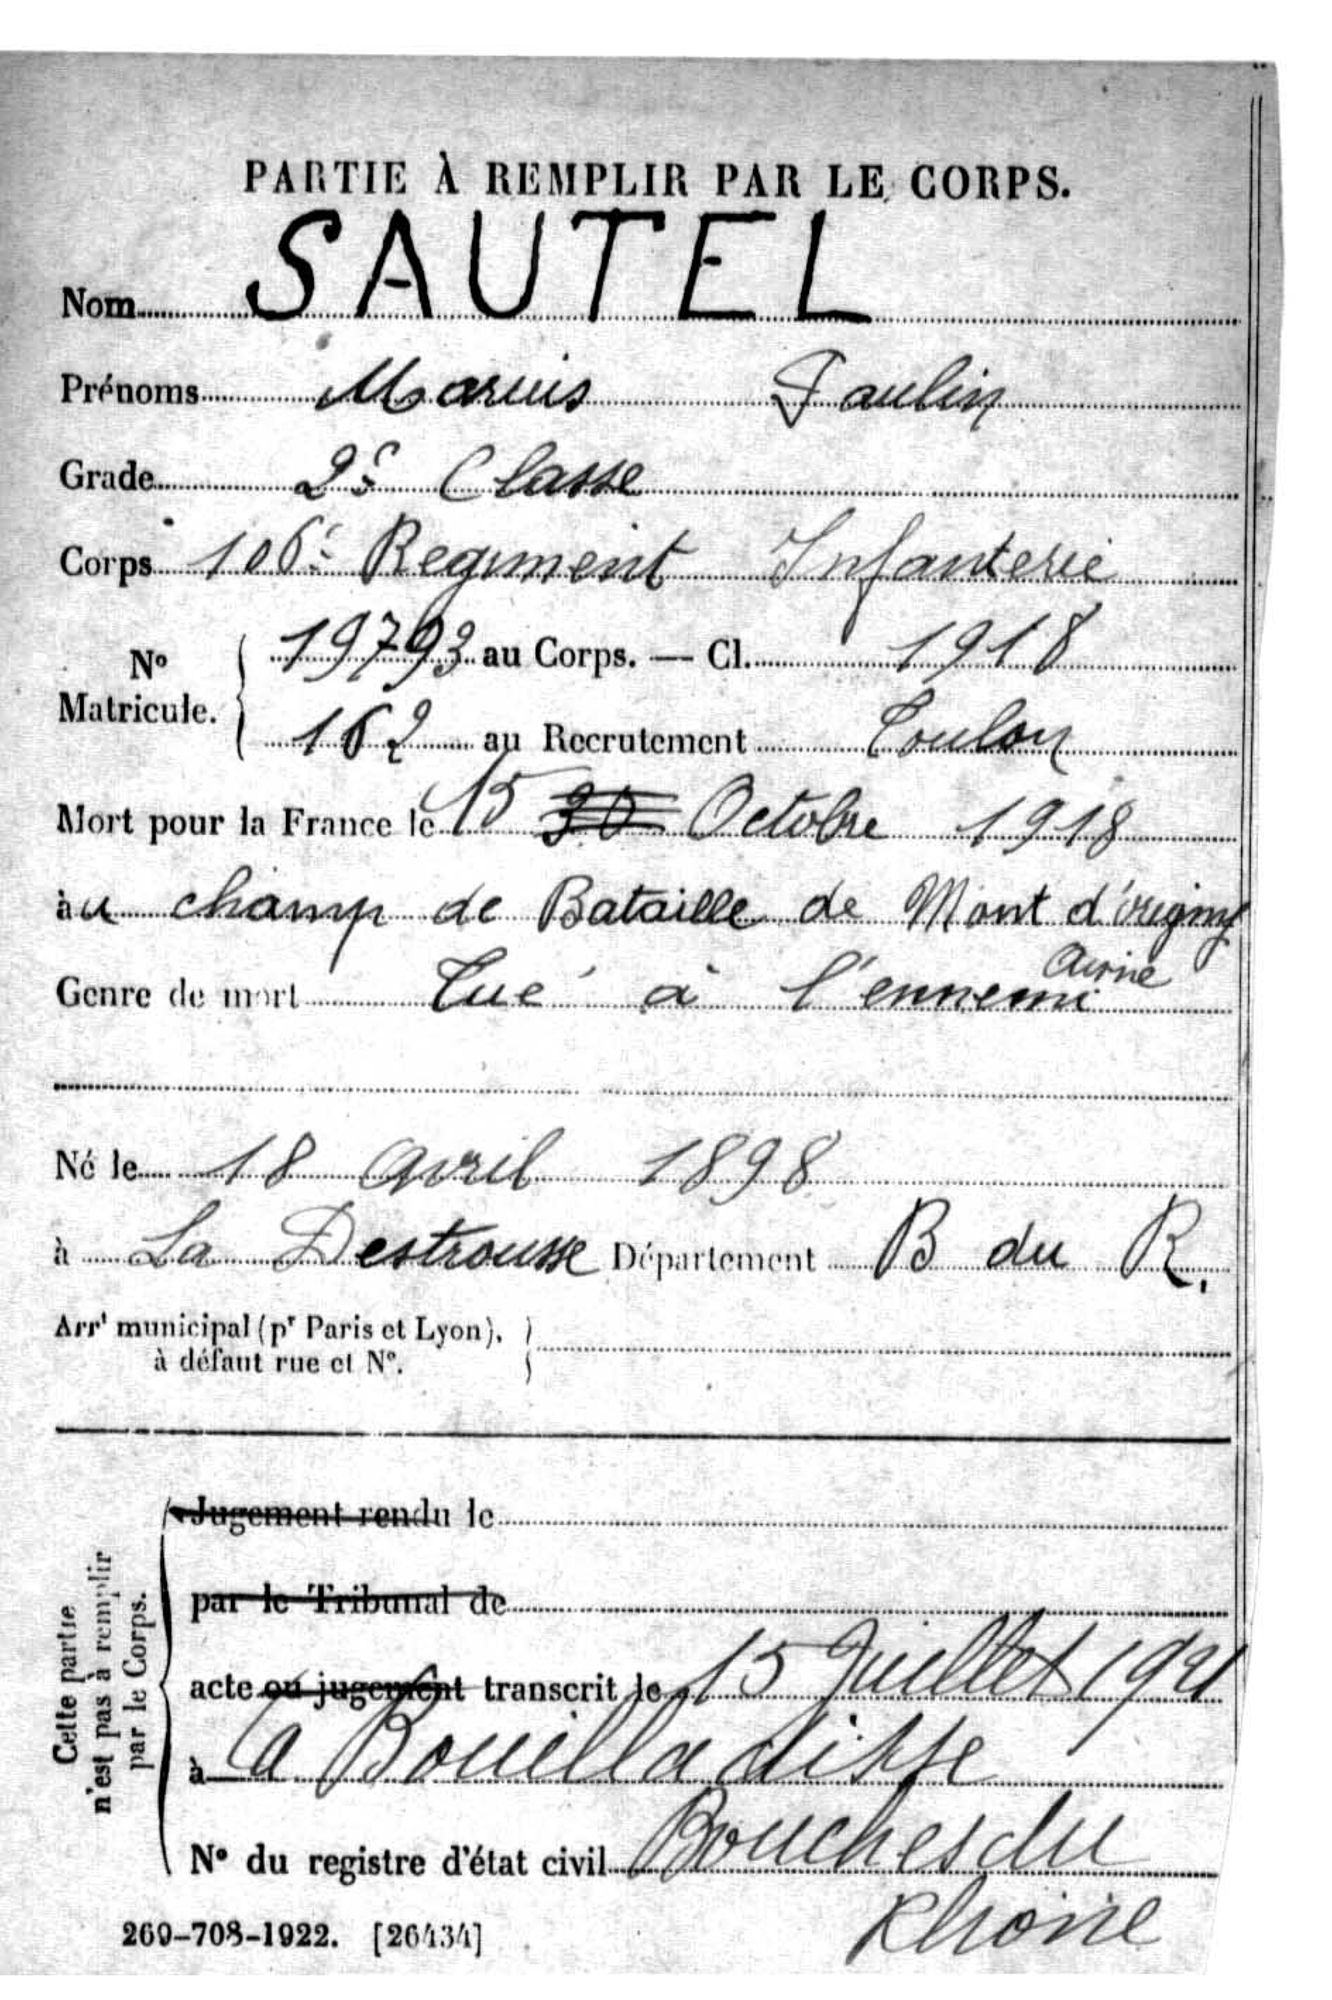 PARTIE À REMPLIR PAR LE CORPS.
Nom SAUTEL
Prénoms Marius Paulin
Grade 2e Classe
Corps 106e Regiment Infanterie
N° Matricule. 19793 au Corps. — Cl. 1918
162 au Recrutement Toulon
Mort pour la France le 15 30 Octobre 1918
àu champ de Bataille de Mont d'origny
Aisne
Genre de mort Tué à l'ennemi
Né le 18 avril 1898
à La Destrousse Département B du R.
Arrt municipal (pr Paris et Lyon),
à défaut rue et N°.
Cette partie n'est pas à remplir par le Corps.
Jugement rendu le
par le Tribunal de
acte ou jugement transcrit le 15 Juillet 1921
à La Bouilladisse
N° du registre d'état civil Bouches du
Rhône
269-708-1922. [26434]